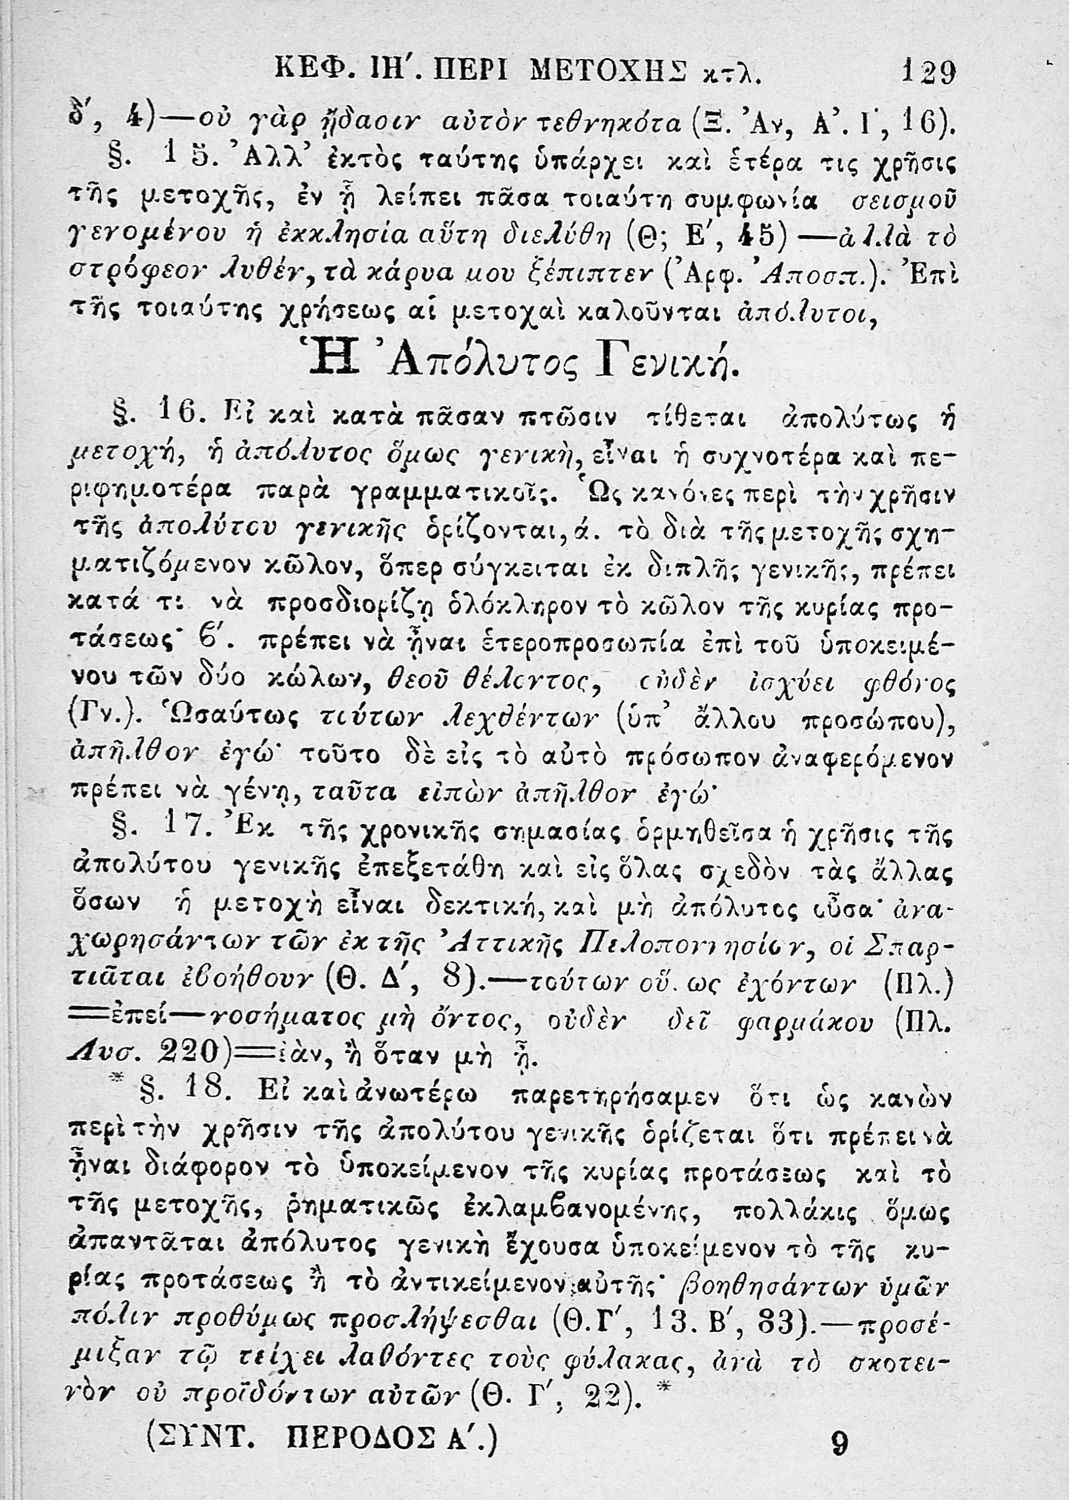 ΚΕΦ. ΙΗʹ. ΠΕΡΙ ΜΕΤΟΧΗΣ κτλ. 129
δʹ, 4)—οὐ γὰρ ᾔδεσιν αὐτὸν τεθνηκότα (Ξ. Ἀν, Αʹ. Ιʹ, 16).
§. 15. Ἀλλ’ ἐκτὸς ταύτης ὑπάρχει καὶ ἑτέρα τις χρῆσις
τῆς μετοχῆς, ἐν ᾗ λείπει πᾶσα τοιαύτη συμφωνία σεισμοῦ
γενομένου ἡ ἐκκλησία αὕτη διελύθη (Θ; Εʹ, 45)—ἀλλὰ τὸ
στρόφεον λυθέν, τὰ κάρυα μου ξέπιπτεν (Ἀρφ. Ἀποσπ.). Ἐπὶ
τῆς τοιαύτης χρήσεως αἱ μετοχαὶ καλοῦνται ἀπόλυτοι,
Ἡ Ἀπόλυτος Γενική.
§. 16. Εἰ καὶ κατὰ πᾶσαν πτῶσιν τίθεται ἀπολύτως ἡ
μετοχή, ἡ ἀπόλυτος ὅμως γενική, εἶναι ἡ συχνοτέρα καὶ πε-
ριφημοτέρα παρὰ γραμματικοῖς. Ὡς κανόνες περὶ τὴν χρῆσιν
τῆς ἀπολύτου γενικῆς ὁρίζονται, ά. τὸ διὰ τῆς μετοχῆς σχη-
ματιζόμενον κῶλον, ὅπερ σύγκειται ἐκ διπλῆς γενικῆς, πρέπει
κατά τι νὰ προσδιορίζῃ ὁλόκληρον τὸ κῶλον τῆς κυρίας προ-
τάσεως· ϐʹ. πρέπει νὰ ᾖναι ἑτεροπροσωπία ἐπὶ τοῦ ὑποκειμέ-
νου τῶν δύο κώλων, θεοῦ θέλοντος, οὐδὲν ἰσχύει φθόνος
(Γν.). Ὡσαύτως τούτων λεχθέντων (ὑπ’ ἄλλου προσώπου),
ἀπῆλθον ἐγώ· τοῦτο δὲ εἰς τὸ αὐτὸ πρόσωπον ἀναφερόμενον
πρέπει νὰ γένῃ, ταῦτα εἰπὼν ἀπῆλθον ἐγώ·
§. 17. Ἐκ τῆς χρονικῆς σημασίας ὁρμηθεῖσα ἡ χρῆσις τῆς
ἀπολύτου γενικῆς ἐπεξετάθη καὶ εἰς ὅλας σχεδὸν τὰς ἄλλας
ὅσων ἡ μετοχὴ εἶναι δεκτική, καὶ μὴ ἀπόλυτος οὖσα· ἀνα-
χωρησάντων τῶν ἐκ τῆς Ἀττικῆς Πελοποννησίων, οἱ Σπαρ-
τιᾶται ἐϐοήθουν (Θ. Δʹ, 8).—τούτων οὕτως ἐχόντων (Πλ.)
=ἐπεί—νοσήματος μὴ ὄντος, οὐδὲν δεῖ φαρμάκου (Πλ.
Λυσ. 220)=ἐὰν, ἢ ὅταν μὴ ᾖ.
* §. 18. Εἰ καὶ ἀνωτέρω παρετηρήσαμεν ὅτι ὡς κανὼν
περὶ τὴν χρῆσιν τῆς ἀπολύτου γενικῆς ὁρίζεται ὅτι πρέπει νὰ
ᾖναι διάφορον τὸ ὑποκείμενον τῆς κυρίας προτάσεως καὶ τὸ
τῆς μετοχῆς, ῥηματικῶς ἐκλαμϐανομένης, πολλάκις ὅμως
ἀπαντᾶται ἀπόλυτος γενικὴ ἔχουσα ὑποκείμενον τὸ τῆς κυ-
ρίας προτάσεως ἢ τὸ ἀντικείμενον αὐτῆς· βοηθησάντων ὑμῶν
πόλιν προθύμως προσλήψεσθαι (Θ. Γʹ, 13. Βʹ, 83).—προσέ-
μιξαν τῷ τείχει λαθόντες τοὺς φύλακας, ἀνὰ τὸ σκοτει-
νὸν οὐ προϊδόντων αὐτῶν (Θ. Γʹ, 22). *
(ΣΥΝΤ. ΠΕΡΟΔΟΣ Αʹ.) 9